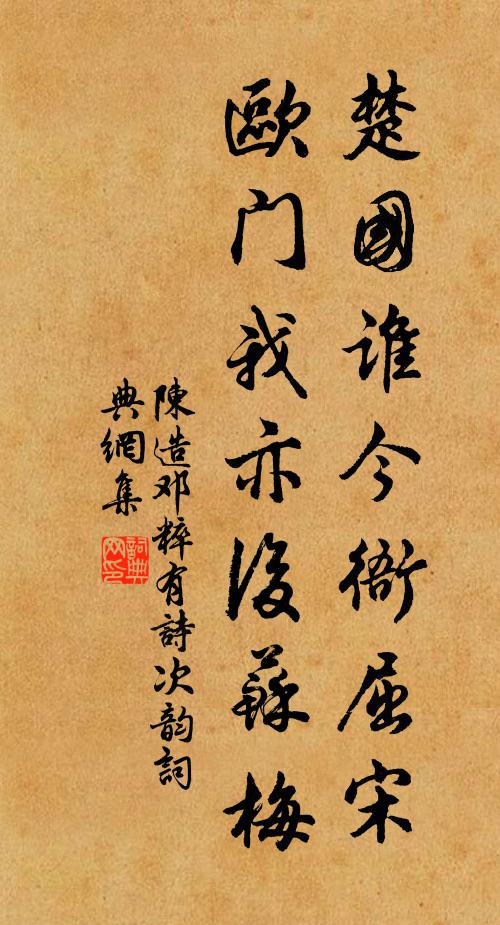 楚國誰今衙屈宋
歐门我亦後蘇梅
陳造邓粹有詩次韵詞
典網集
詞典网印